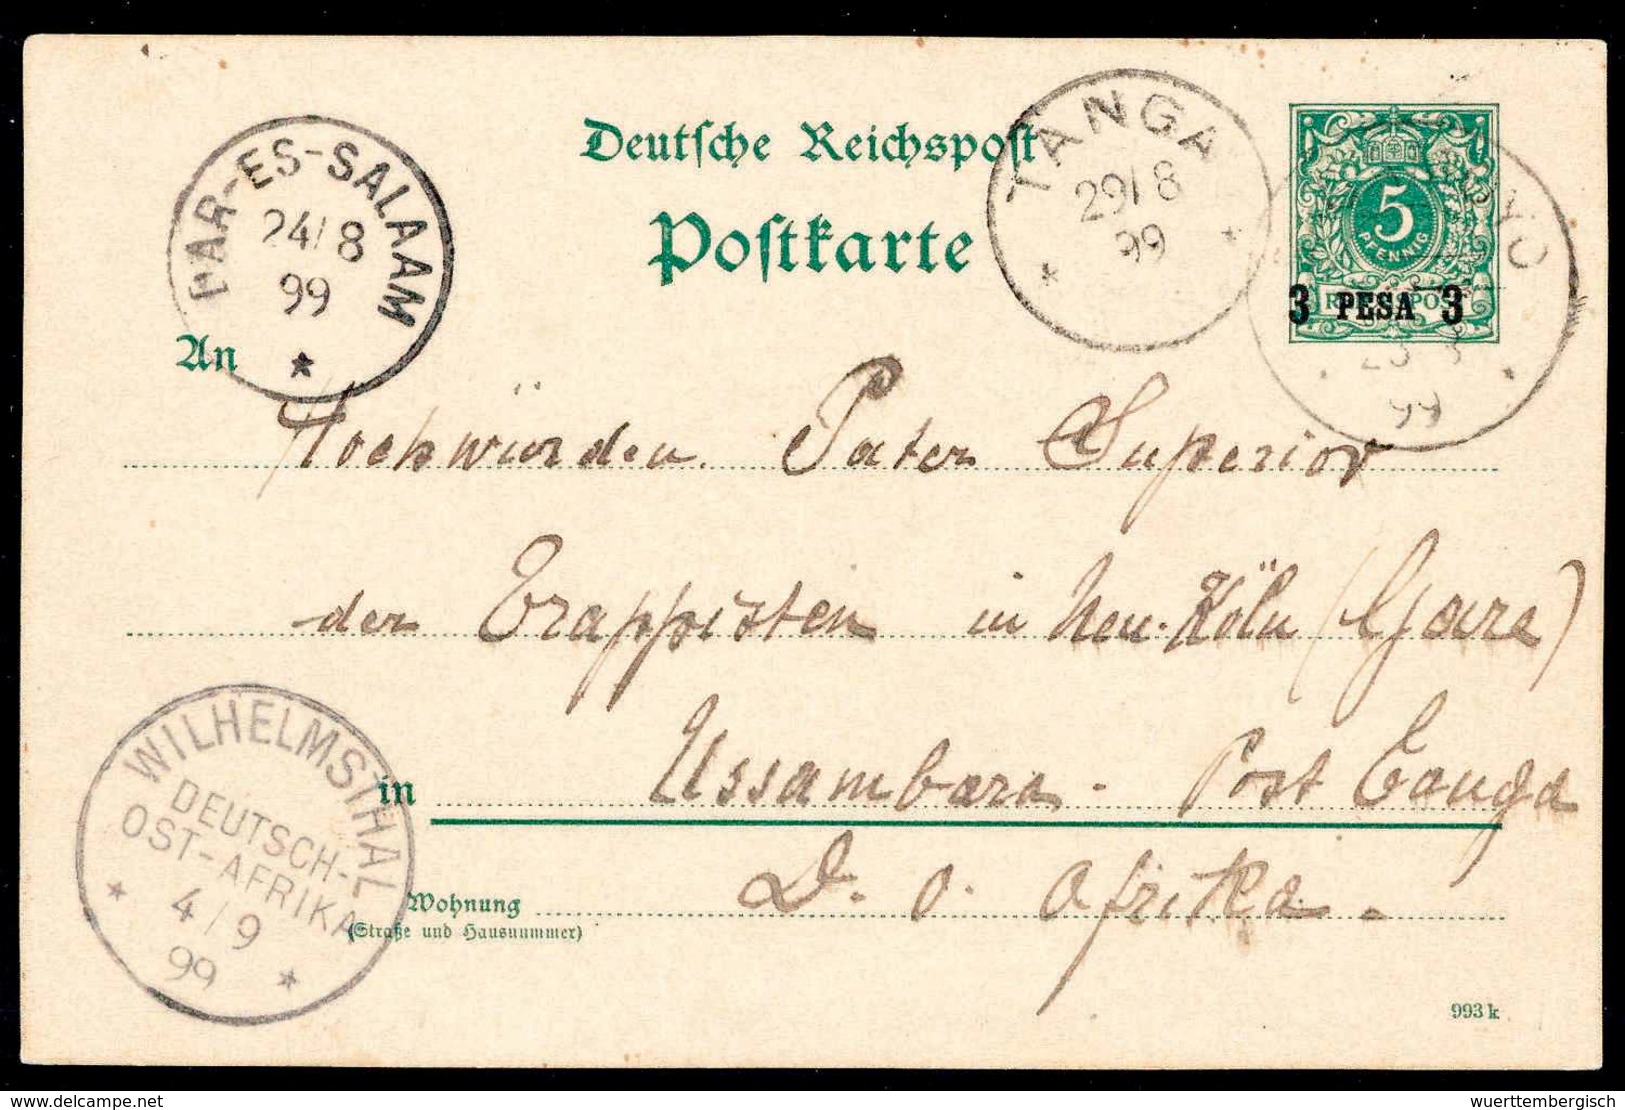 Deutsche Reichspost
Postkarte
DAR-ES-SALAAM
24/8
99
TANGA
29/8
99
5
PFENNIG
3 PESA 3
99
An
Hochwürden Pater Superior
der Trappisten in Neu-Köln (Gare)
in Ussambara. Post Tanga
D. O. Afrika.
Wohnung
(Straße und Hausnummer)
WILHELMSTHAL
DEUTSCH-
OST-AFRIKA
4/9
99
993 k
www.delcampe.net
wuerttembergisch